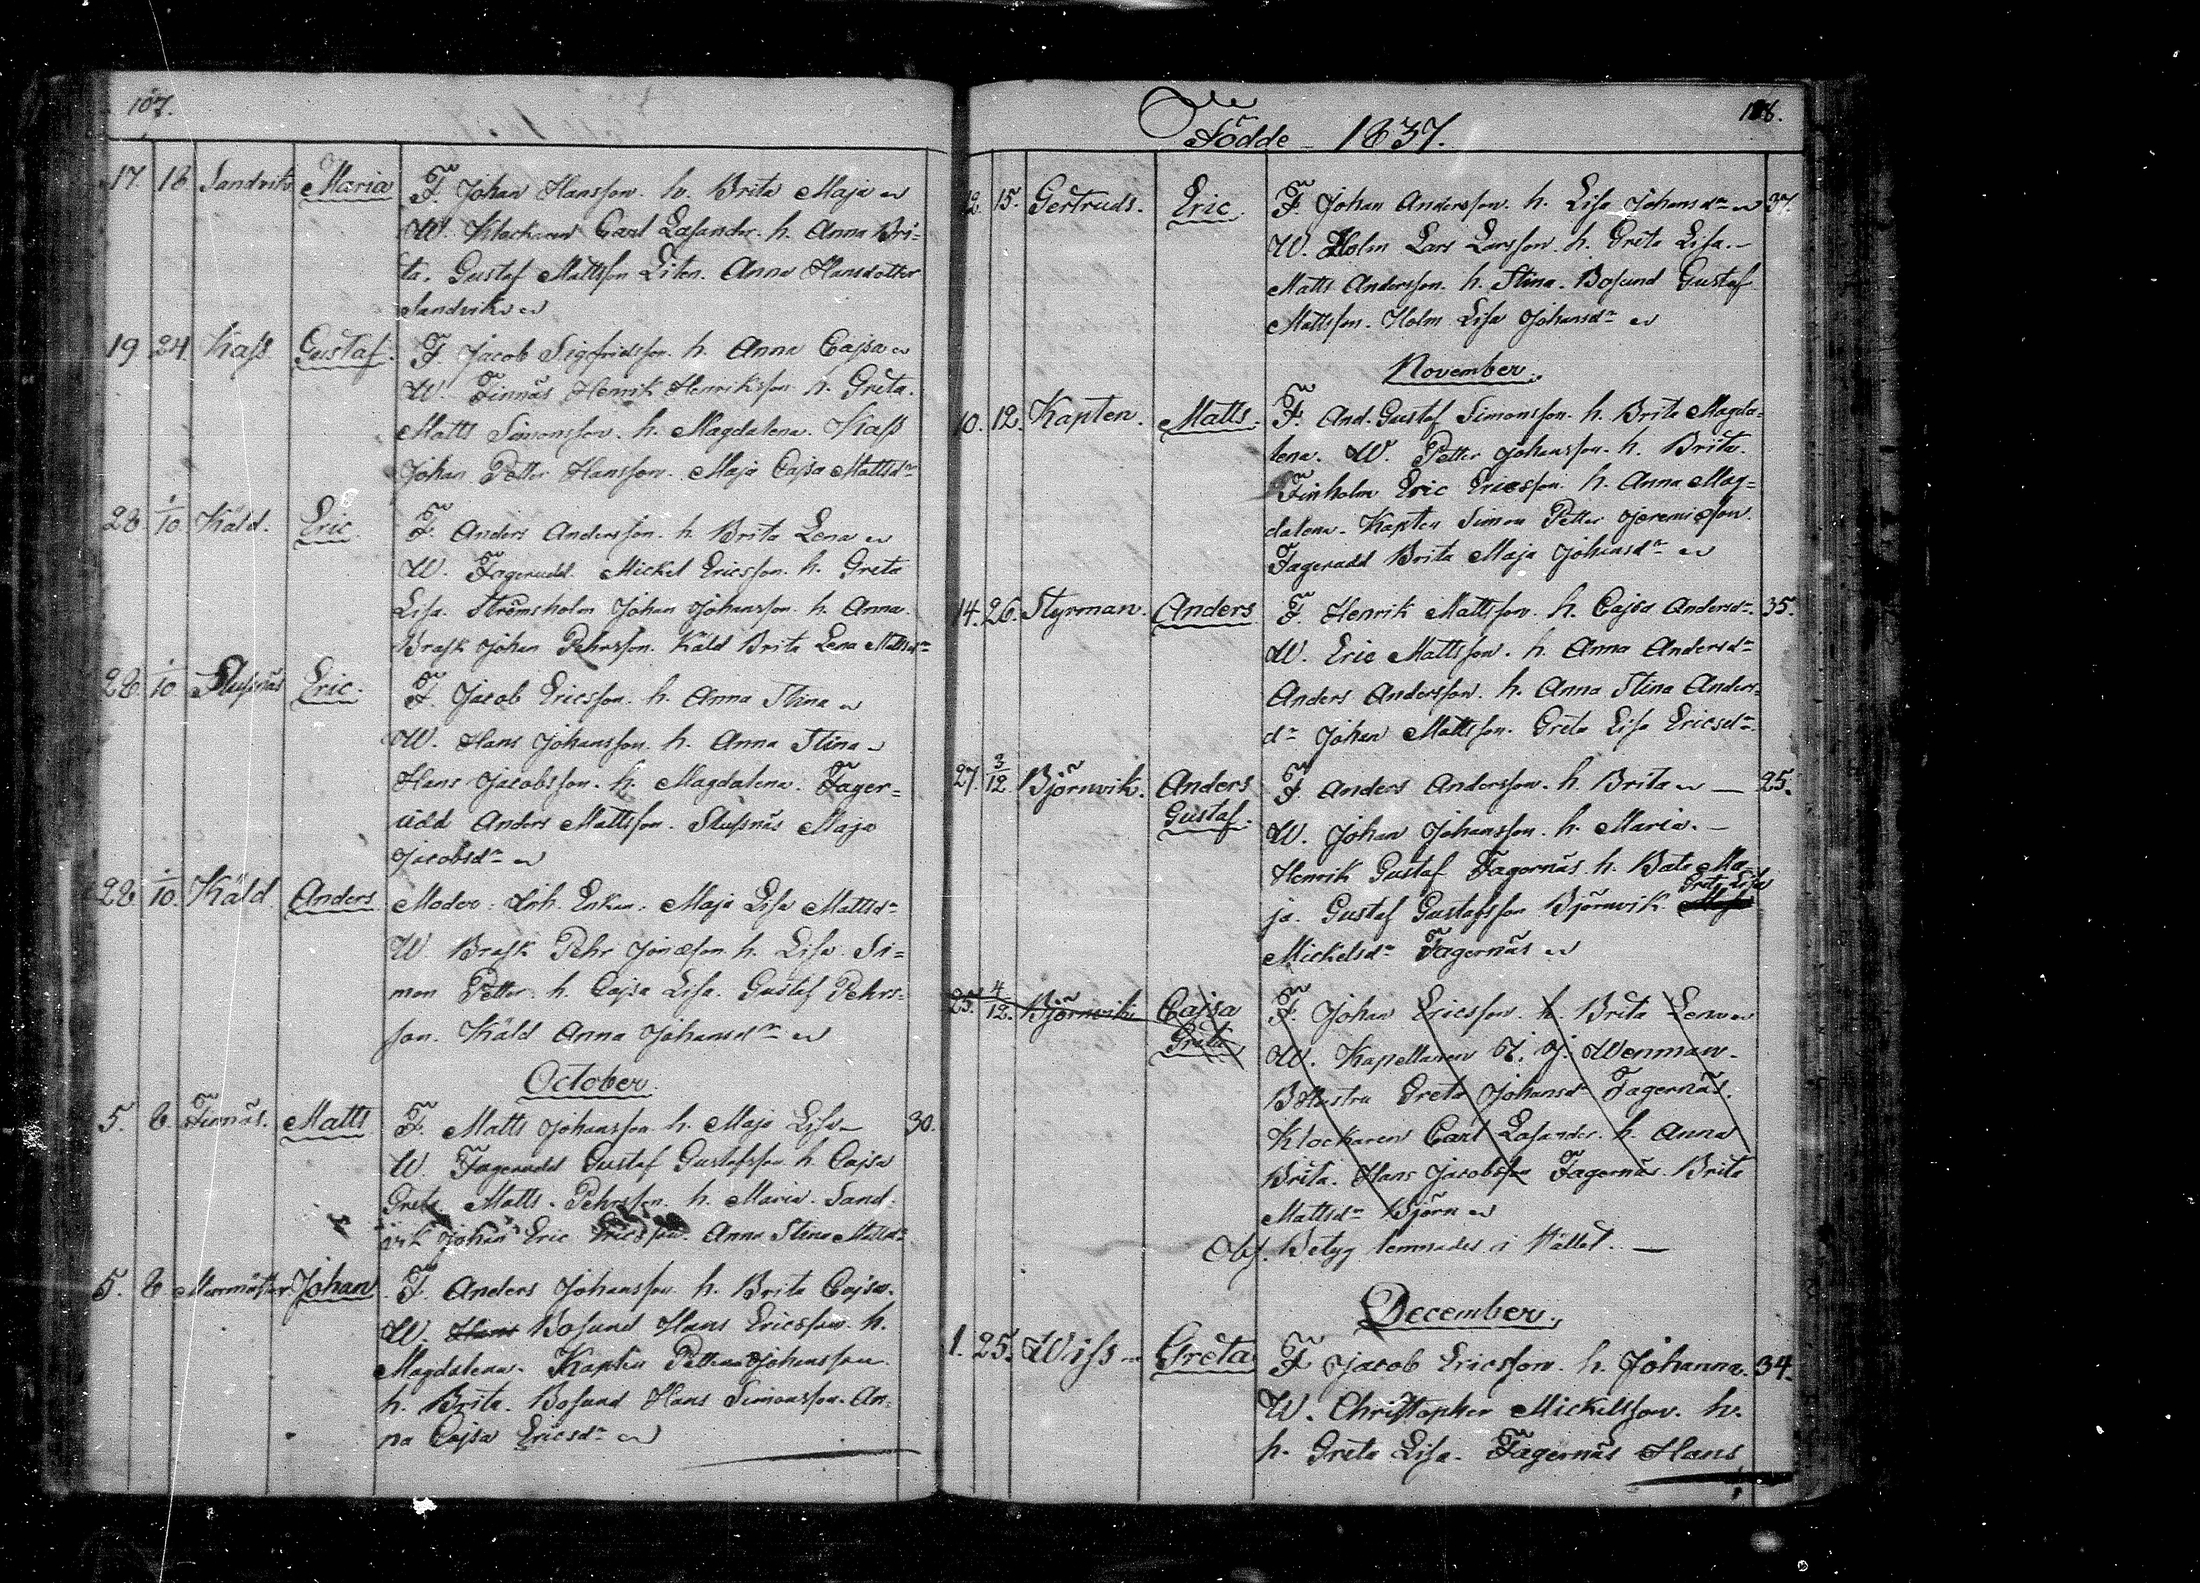 107.
17. 18 Sandvik Maria F. Johan Hansson. h. Brita Maja
W. Klockaren Carl Lasander. h. Anna Bri=
ta. Gustaf Mattsson Liten. Anna Hansdotter
Sandvik
19 24 Kass Gustaf. F Jacob Sigfridsson. h. Anna Cajsa
W. Finnäs Henrik Henriksson h. Greta.
Matts Simonsson. h. Magdalena. Kass
Johan Petter Hansson. Maja Cajsa Mattsdr
28 1/10 Käld. Eric F Anders Andersson. h. Brita Lena
W. Fagerudd. Mickel Ericsson. h. Greta
Lisa. Strömsholm Johan Johansson. h. Anna.
Brask Johan Pehrsson. Käld Brita Lena Mattsdr
28 1/10 Slussnäs Eric. F. Jacob Ericsson. h. Anna Stina
W. Hans Johansson. h. Anna Stina
Hans Jacobsson. h. Magdalena. Fager=
udd Anders Mattsson. Slussnäs Maja
Jacobsdr
28 1/10 Käld Anders Moder: Enkan: Maja Lisa Mattsdr
W. Brask Pehr h. Lisa. Si=
mon Petter. h. Cajsa Lisa. Gustaf Pehrs=
son. Käld Anna Johansdr
October.
5. 8. Finnäs. Matts F. Matts Johansson h. Maja Lisa 30.
W. Fagerudd Gustaf Gustafsson h. Cajsa
Greta Matts. Pehrsson. h. Maria. Sand=
vik Johan Eric Ericsson. Anna Stina Mattsdr
5. 8 Murmäster Johan F. Anders Johansson h. Brita Cajsa.
W. Hans Bosund Hans Ericsson. h.
Magdalena. Kapten Petter Johansson
h. Brita. Bosund Hans Simonsson. An=
na Cajsa Ericsdr
Födde 1837.
108.
12. 15. Gertruds. Eric F. Johan Andersson. h. Lisa Johansdr 37.
W. Holm Lars Larsson. h. Greta Lisa.
Matts Andersson. h. Stina. Bosund Gustaf
Mattsson. Holm Lisa Johansdr
November.
10. 12. Kapten. Matts. F. And. Gustaf Simonsson. h. Brita Magda=
lena. W. Petter Johansson. h. Brita.
Finholm Eric Ericsson. h. Anna Mag=
dalena. Kapten Simon Petter Jeremiasson.
Fagerudd Brita Maja Johansdr
14. 26. Styrman. Anders F. Henrik Mattsson. h. Cajsa Andersdr. 35.
W. Eric Mattsson. h. Anna Andersdr
Anders Andersson. h. Anna Stina Anders=
dr Johan Mattsson. Greta Lisa Ericsdr.
27. 3/12 Björnvik. Anders F. Anders Andersson. h. Brita 25.
Gustaf. W. Johan Johansson. h. Maria.
Henrik Gustaf Fagernäs. h. Ma=
Greta Lisa
ja. Gustaf Gustafsson Björnvik.
Mickelsdr Fagernäs
25. 4/12. Björnvik Cajsa F. Johan Ericsson. h. Brita Lena
Greta W. Kapellanen J. Wenman.
Hustru Greta Johansdr Fagernäs.
Klockaren Carl Lasander. h. Anna
Brita. Hans Jacobsson Fagernäs. Brita
Mattsdr Björn
Obs. Betyg lemnades i Stället.
December.
1. 25. Wiss Greta F Jacob Ericsson. h. Johanna. 34.
W. Christopher Mickelsson. h.
h. Greta Lisa. Fagernäs Hans